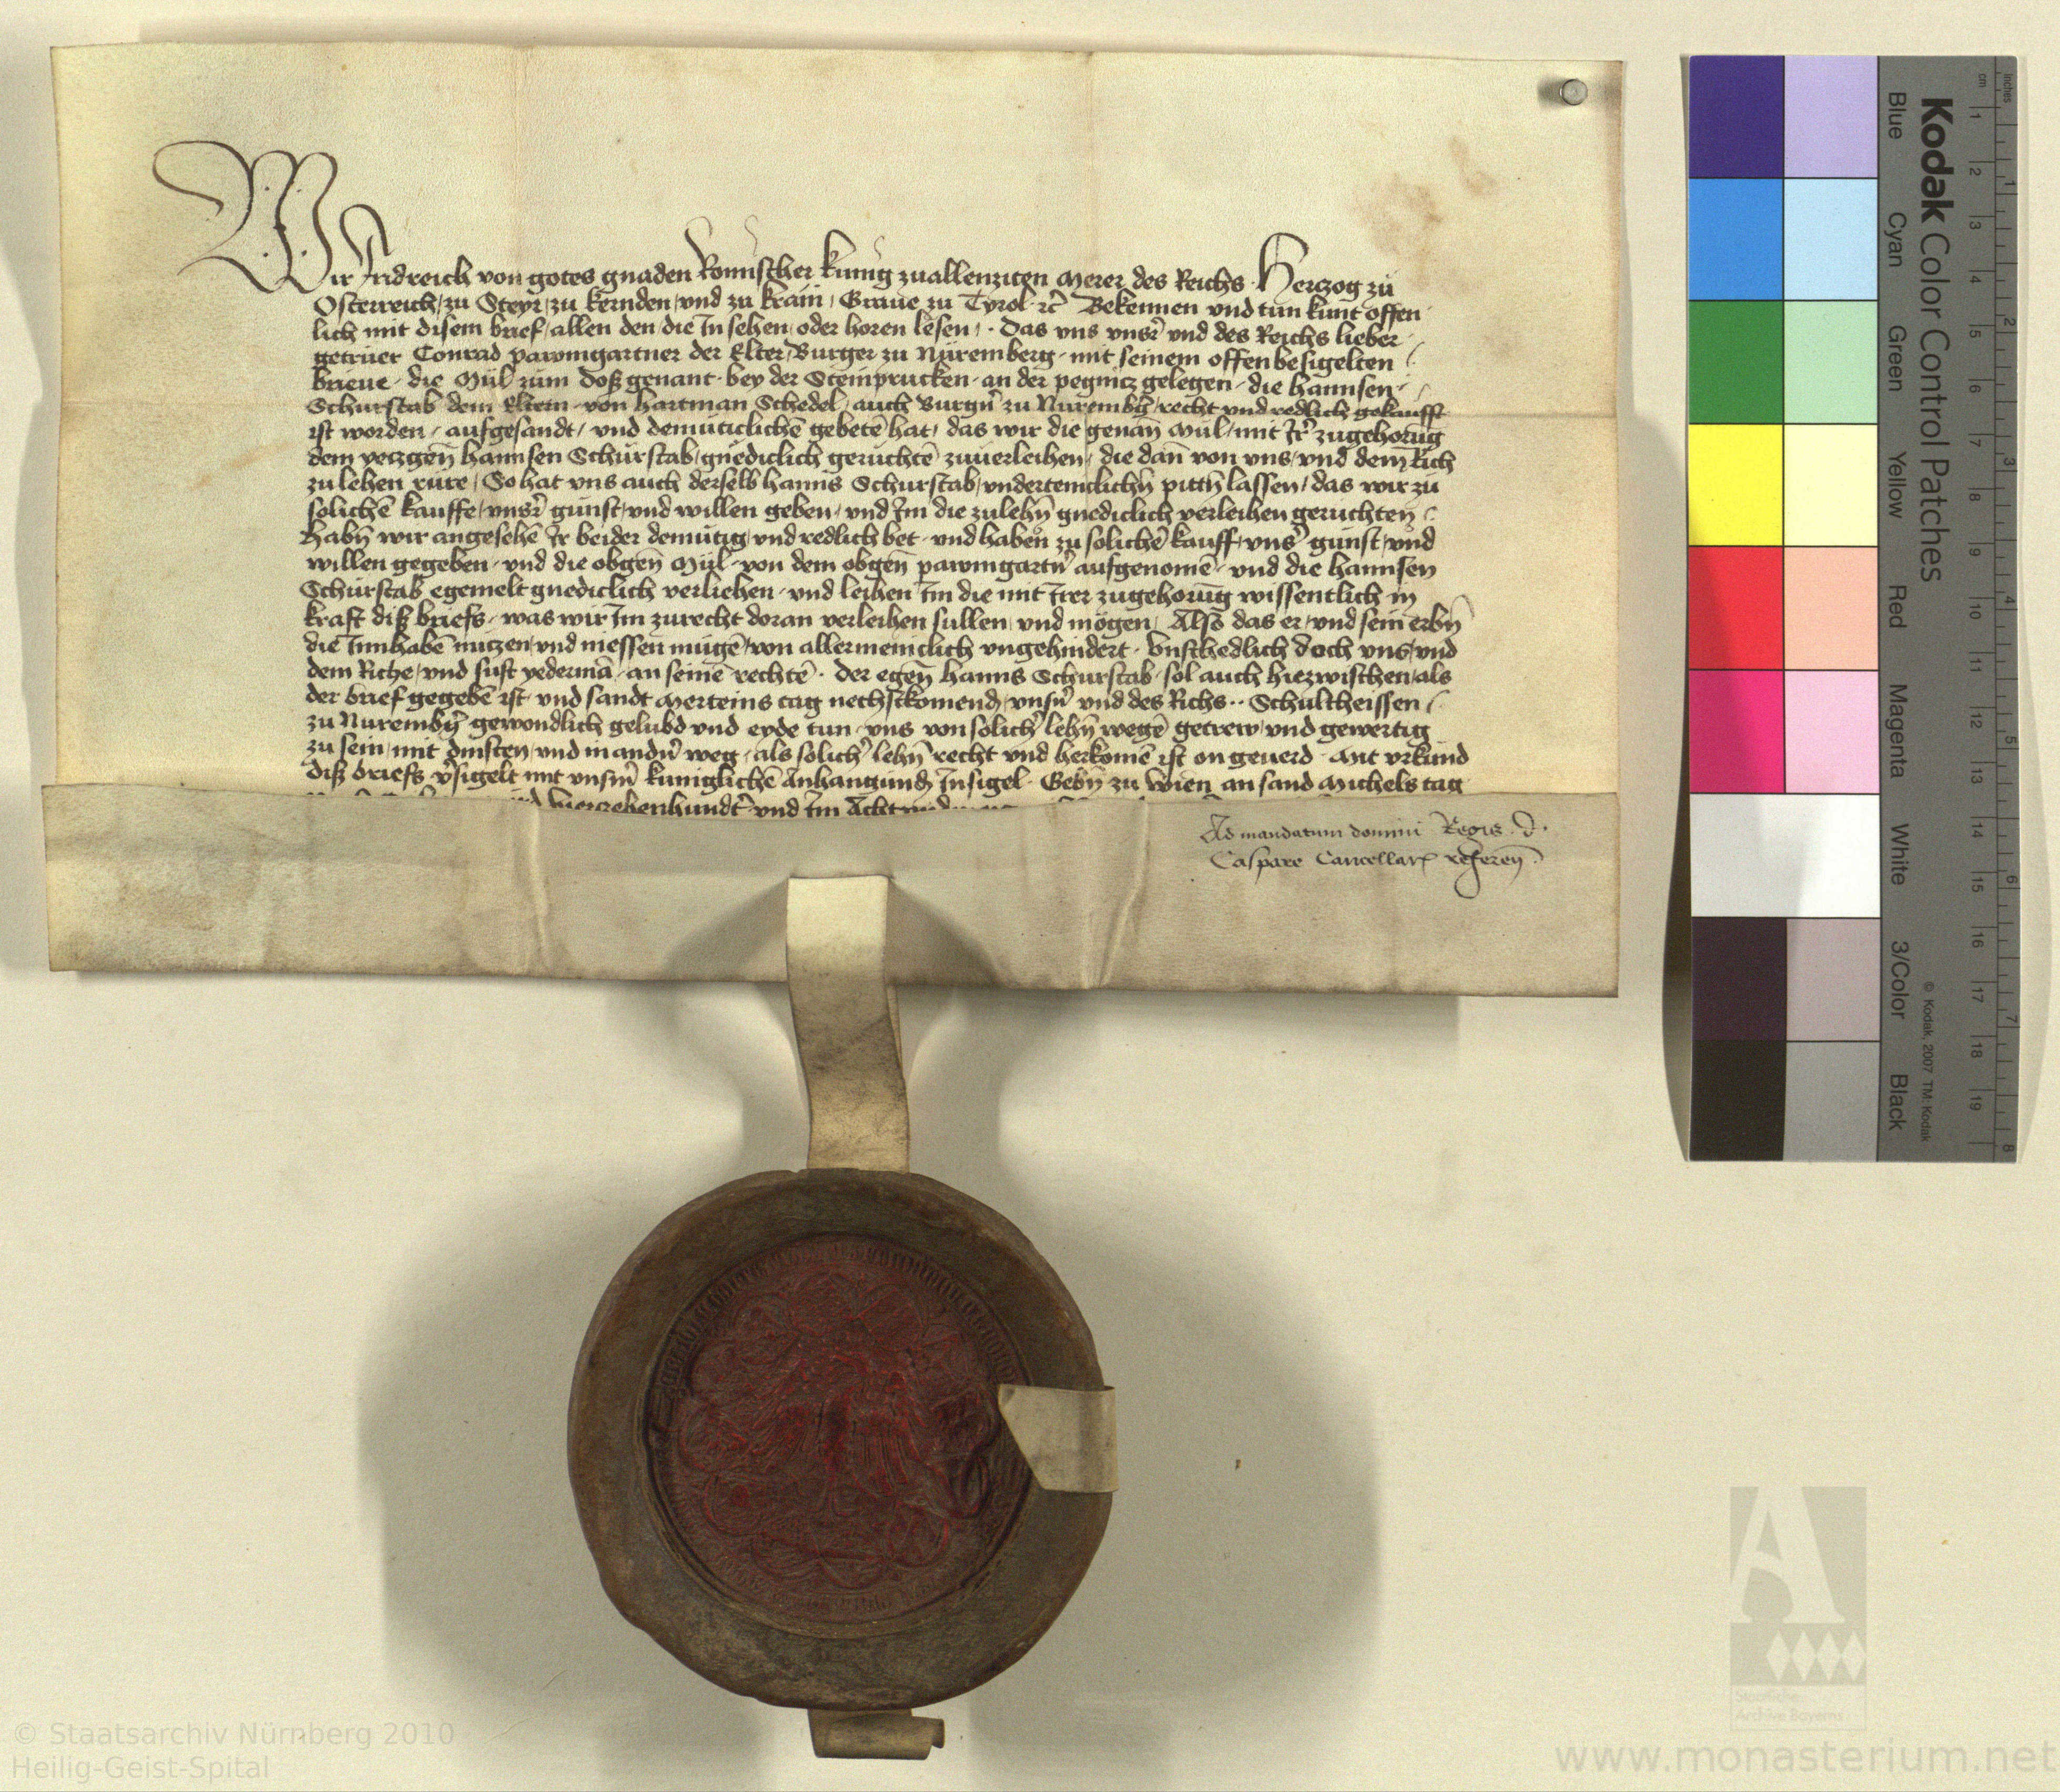 Wir Fridreich von gotes gnaden Romischer kunig zuallenziten Merer des Reichs Herczog zu
Osterreich, zu Steyr, zu kernden, vnd zu krain, Graue zu Tyrol ꝛc̃ Bekennen vnd tun kunt offen
lich mit disem brief, allen den, die In sehen, oder horen lesen, Das vns vnsr̃ vnd des Reichs lieber
getruer Conrad pawmgartner der Elter, Burger zu Nüremberg, mit seinem offenbesigelten
brieue, die Mül zum Doß genant, bey der Steinprucken, an der pegnicz gelegen, die hannsen
Schürstab dem Eltern, von hartman Schedel, auch Burgñ zu Nurembg̃, recht vnd redlich gekaufft
ist worden, aufgesandt, vnd demüticlichẽ gebetẽ hat, das wir die genañ Mul, mit Ir̃ zugehorũg
dem yeczgeñ hannsen Schürstab, gnediclich geruchtẽ zuuerleihen, die dañ von vns, vnd dem Rich
zu lehen rure, So hat vns auch derselb hanns Schurstab, vnderteniclichñ pittñ lassen, das wir zu
solichẽ kauffe, vnsr̃ gunst, vnd willen geben, vnd Im die zulehñ gnediclich verleihen geruchten
Habñ wir angesehẽ Ir beider demütig, vnd redlich bet, vnd haben zu solichẽ kauff, vns̃ gunst, vnd
willen gegeben, vnd die obgeñ Mül, von dem obgeñ pawmgartñ aufgenomẽ, vnd die hannsen
Schürstab egemelt gnediclich verliehen, vnd leihen Im die mit Irer zugehorũg wissentlich in
kraft diß briefs, was wir Im zurecht doran verleihen sullen, vnd mögen, Also das er, vnd sein erbñ
die Innhabẽ nüczen, vnd niessen mügẽ, von allermeniclich vngehindert, Vnschedlich doch vns, vnd
dem Riche, vnd sust yedermã, an seinẽ rechtẽ. Der egeñ hanns Schurstab, sol auch hiezwischen, als
der brief gegebẽ ist, vnd sandt Merteins tag nechstkomend, vnsñ vnd des Richs.. Schultheissen
zu Nurembg̃ gewondlich gelubd vnd eyde tun, vns von solich̃ lehñ wegẽ getrew, vnd gewertig
zu sein, mit dinsten, vnd in andñ weg, als solich̃ lehñ recht vnd herkomẽ ist on geuerd. Mit vrkund
diß briefs v̾sigelt mit vnsm̃ kuniglichẽ Anhangund Insigel. Gebñ zu Wien, an sand Michels tag
vierczehenhundt̃ vnd Im Acht
Ad mandatum domini Regis d.
Caspare Cancellar̃ refereñ.
Kodak Color Control Patches
© Kodak, 2007 TM: Kodak
Blue
Cyan
Green
Yellow
Red
Magenta
White
3/Color
Black
inches
1
2
3
4
5
6
7
8
cm
1
2
3
4
5
6
7
8
9
10
11
12
13
14
15
16
17
18
19
© Staatsarchiv Nürnberg 2010
Heilig-Geist-Spital
A
Staatliche
Archive Bayerns
www.monasterium.net